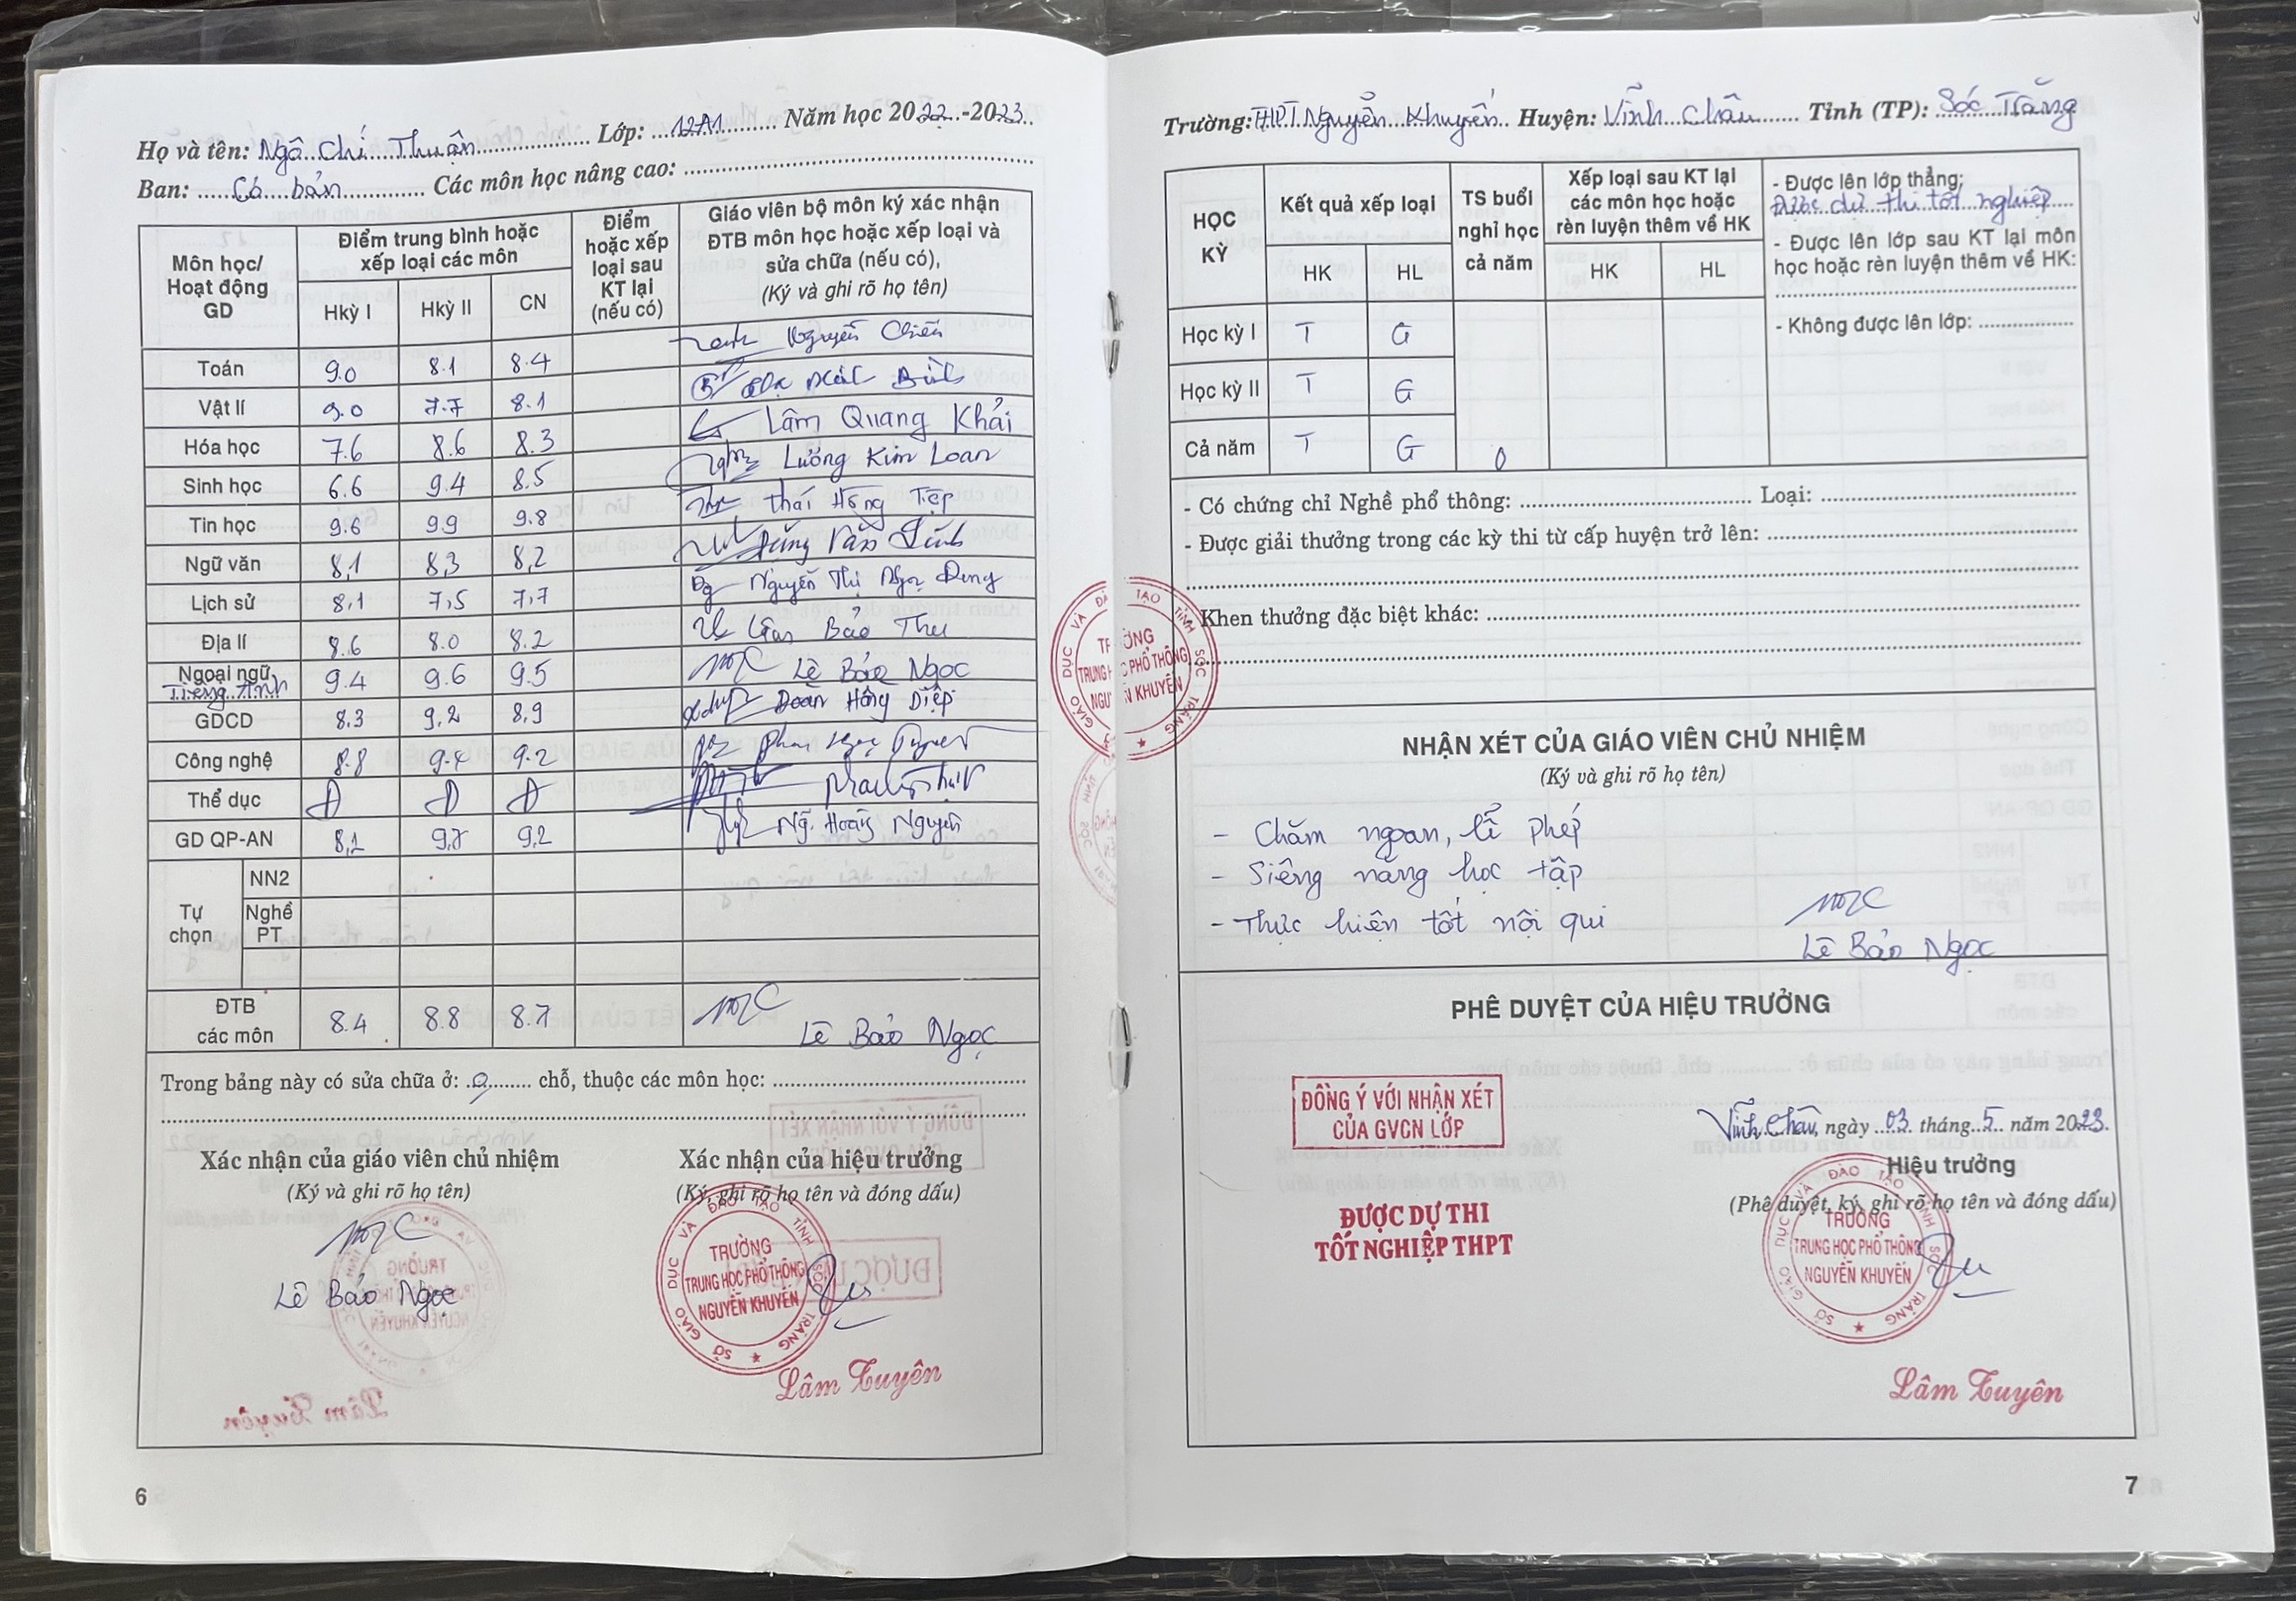 Họ và tên: Ngô Chí Thuận Lớp: 12A1 Năm học 2022-2023
Ban: Cơ bản Các môn học nâng cao:
Môn học/ Hoạt động GD
Điểm trung bình hoặc xếp loại các môn
Hkỳ I Hkỳ II CN
Điểm hoặc xếp loại sau KT lại (nếu có)
Giáo viên bộ môn ký xác nhận ĐTB môn học hoặc xếp loại và sửa chữa (nếu có), (Ký và ghi rõ họ tên)
Toán 9.0 8.1 8.4 Nguyễn Chiến
Vật lí 9.0 7.7 8.1
Hóa học 7.6 8.6 8.3 Lâm Quang Khải
Sinh học 6.6 9.4 8.5 Lương Kim Loan
Tin học 9.6 9.9 9.8 Thái Hồng Tiệp
Ngữ văn 8,1 8,3 8,2
Lịch sử 8,1 7,5 7,7 Nguyễn Thị Ngọc Dung
Địa lí 8.6 8.0 8.2 Lâm Bảo Thu
Ngoại ngữ Tiếng Anh 9.4 9.6 9.5 Lê Bảo Ngọc
GDCD 8.3 9,2 8,9 Đoàn Hồng Diệp
Công nghệ 8.8 9.4 9.2
Thể dục Đ Đ Đ
GD QP-AN 8,2 9,7 9,2 Ng. Hoàng Nguyên
Tự chọn
NN2
Nghề PT
ĐTB các môn 8.4 8.8 8.7 Lê Bảo Ngọc
Trong bảng này có sửa chữa ở: 0 chỗ, thuộc các môn học:
Xác nhận của giáo viên chủ nhiệm
(Ký và ghi rõ họ tên)
Lê Bảo Ngọc
Xác nhận của hiệu trưởng
(Ký, ghi rõ họ tên và đóng dấu)
SỞ GIÁO DỤC VÀ ĐÀO TẠO TỈNH SÓC TRĂNG
TRƯỜNG
TRUNG HỌC PHỔ THÔNG
NGUYỄN KHUYẾN
Lâm Tuyên
6
Trường: THPT Nguyễn Khuyến Huyện: Vĩnh Châu Tỉnh (TP): Sóc Trăng
HỌC KỲ
Kết quả xếp loại
HK HL
TS buổi nghỉ học cả năm
Xếp loại sau KT lại các môn học hoặc rèn luyện thêm về HK
HK HL
- Được lên lớp thẳng:
Được dự thi tốt nghiệp
- Được lên lớp sau KT lại môn
học hoặc rèn luyện thêm về HK:
- Không được lên lớp:
Học kỳ I T G
Học kỳ II T G
Cả năm T G 0
- Có chứng chỉ Nghề phổ thông: Loại:
- Được giải thưởng trong các kỳ thi từ cấp huyện trở lên:
- Khen thưởng đặc biệt khác:
SỞ GIÁO DỤC VÀ ĐÀO TẠO TỈNH SÓC TRĂNG
TRƯỜNG
TRUNG HỌC PHỔ THÔNG
NGUYỄN KHUYẾN
NHẬN XÉT CỦA GIÁO VIÊN CHỦ NHIỆM
(Ký và ghi rõ họ tên)
- Chăm ngoan, lễ phép
- Siêng năng học tập
- Thực hiện tốt nội qui
Lê Bảo Ngọc
PHÊ DUYỆT CỦA HIỆU TRƯỞNG
ĐỒNG Ý VỚI NHẬN XÉT
CỦA GVCN LỚP
ĐƯỢC DỰ THI
TỐT NGHIỆP THPT
Vĩnh Châu, ngày 03 tháng 5 năm 2023.
Hiệu trưởng
(Phê duyệt, ký, ghi rõ họ tên và đóng dấu)
SỞ GIÁO DỤC VÀ ĐÀO TẠO TỈNH SÓC TRĂNG
TRƯỜNG
TRUNG HỌC PHỔ THÔNG
NGUYỄN KHUYẾN
Lâm Tuyên
7